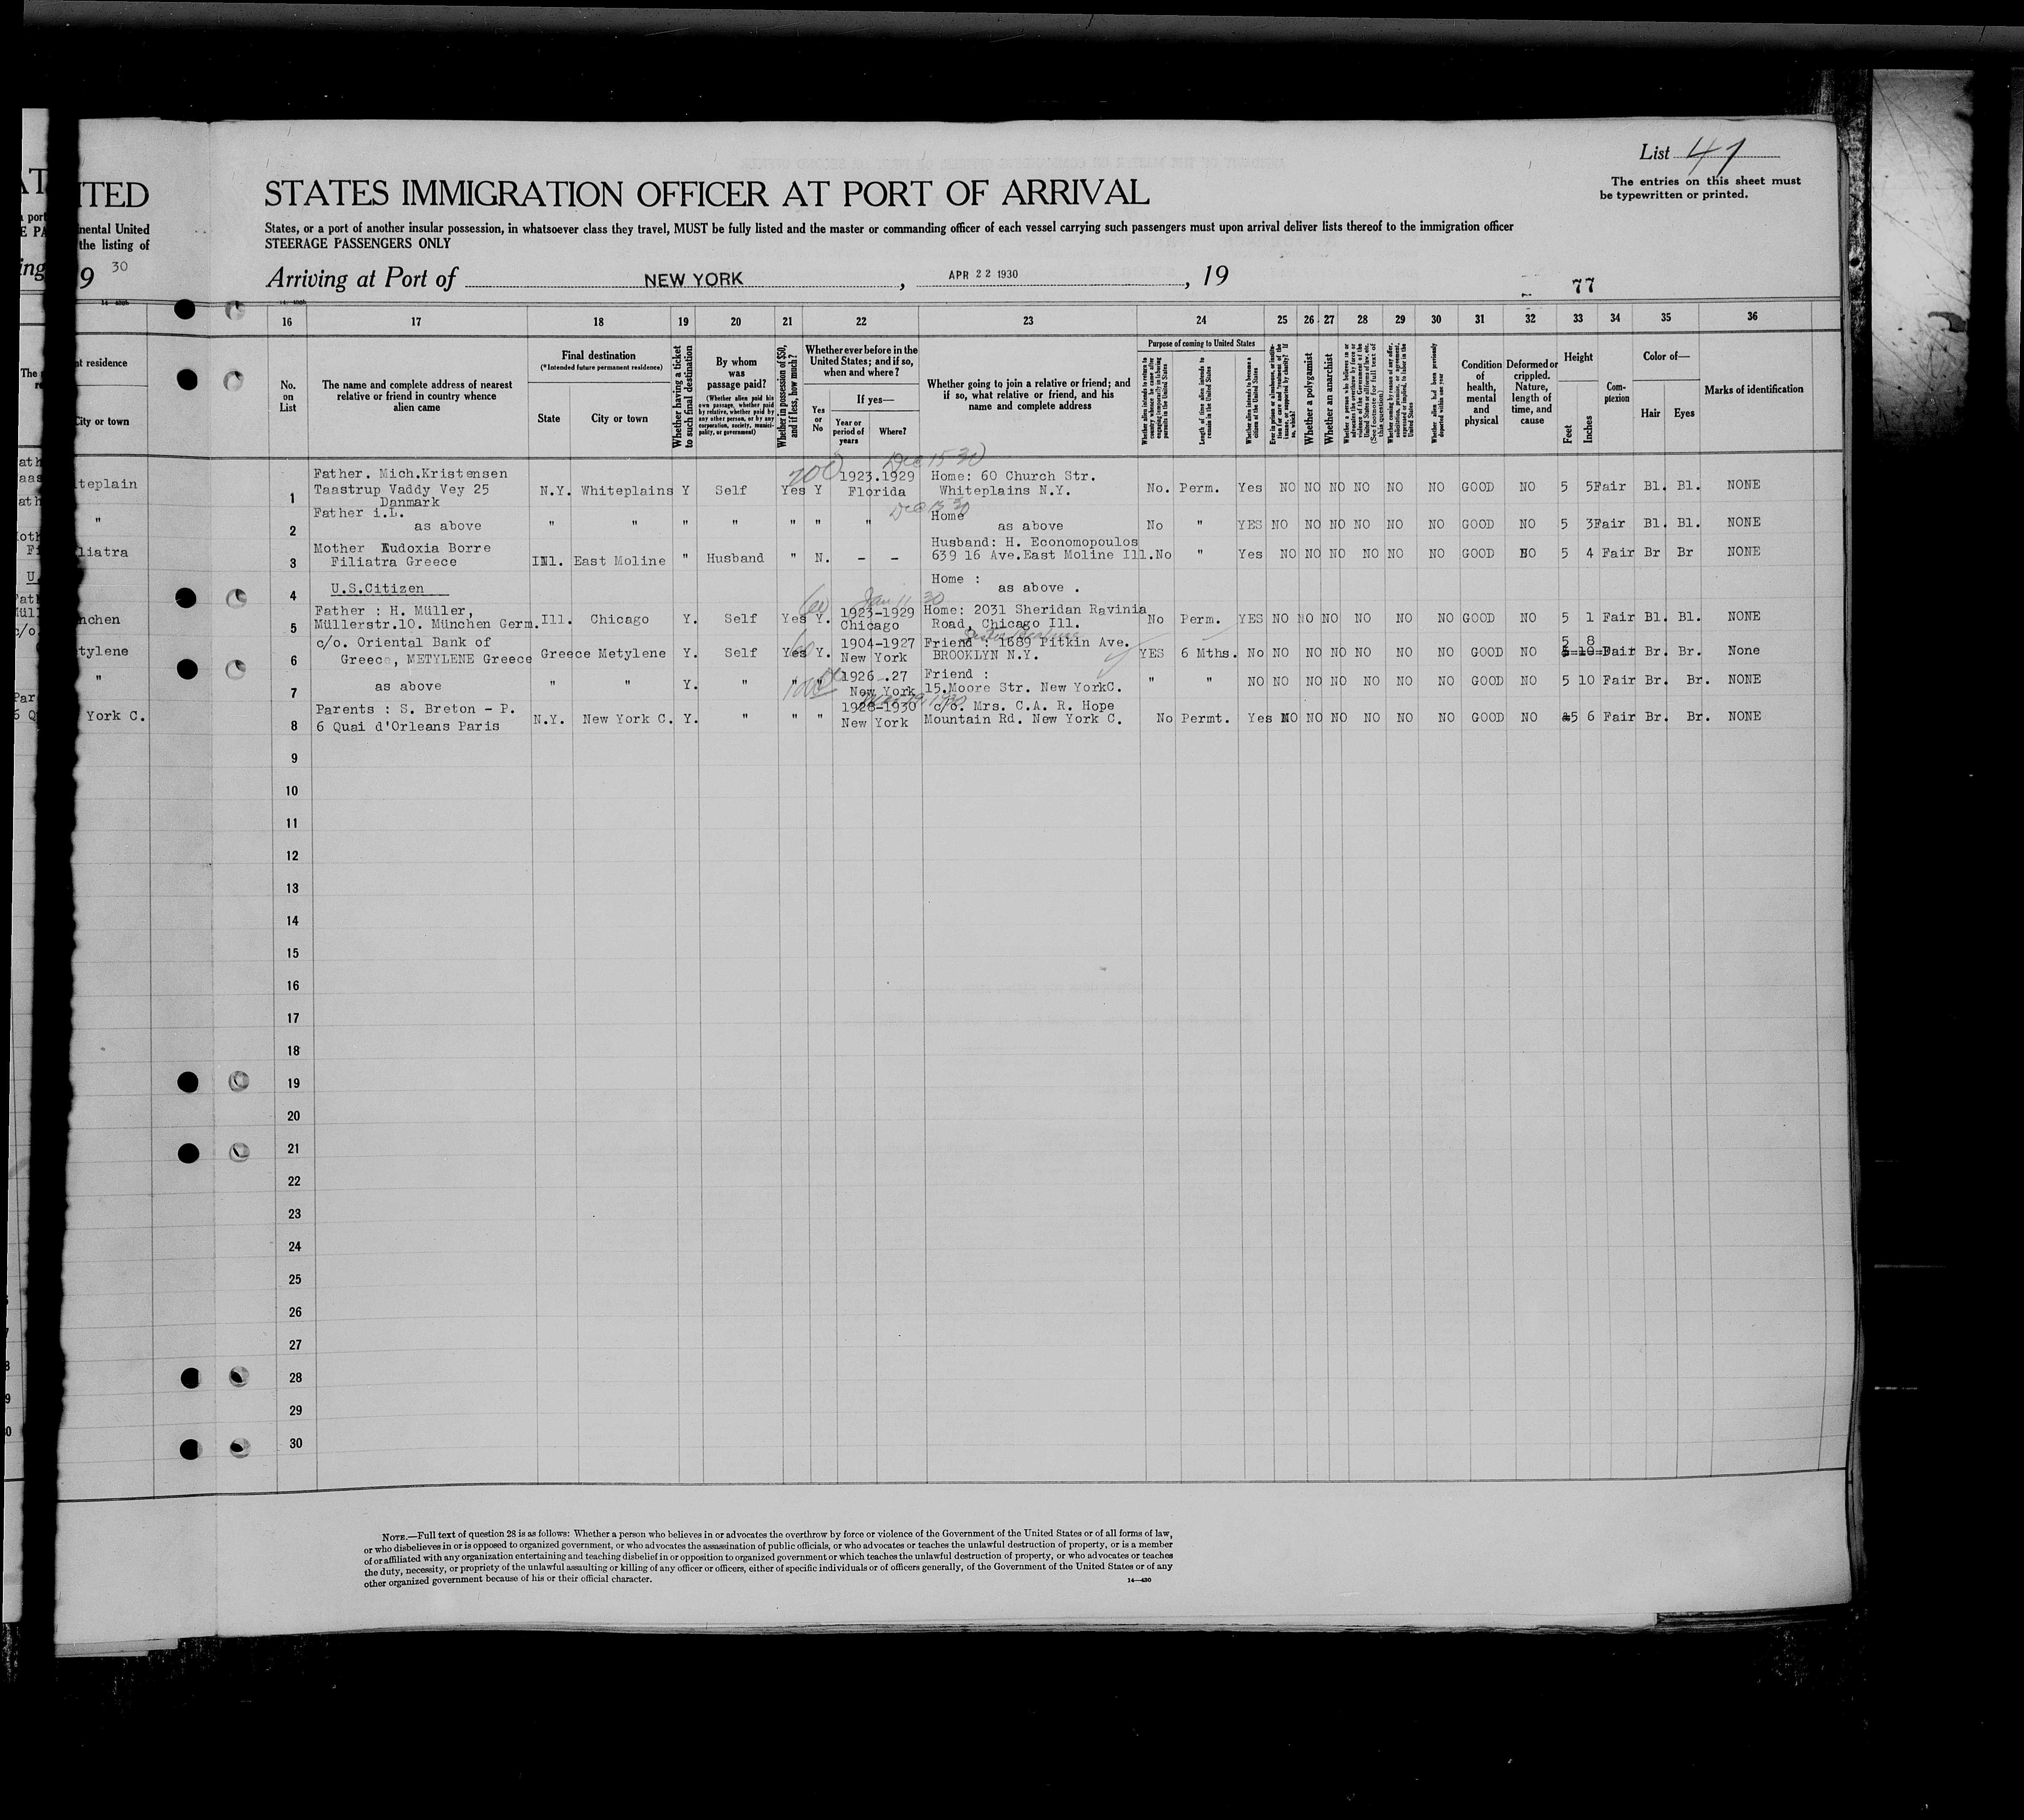 List 41
The entries on this sheet must
be typewritten or printed.
ITED
STATES IMMIGRATION OFFICER AT PORT OF ARRIVAL
nental United
the listing of
States, or a port of another insular possession, in whatsoever class they travel, MUST be fully listed and the master or commanding officer of each vessel carrying such passengers must upon arrival deliver lists thereof to the immigration officer
STEERAGE PASSENGERS ONLY
9 30
Arriving at Port of NEW YORK, APR 22 1930, 19
77
16 17 18 19 20 21 22 23 24 25 26 27 28 29 30 31 32 33 34 35 36
nt residence
City or town
No.
on
List
The name and complete address of nearest
relative or friend in country whence
alien came
Final destination
(*Intended future permanent residence)
State
City or town
Whether having a ticket
to such final destination
By whom
was
passage paid?
(Whether alien paid his
own passage, whether paid
by relative, whether paid by
any other person, or by any
corporation, society, munici-
pality, or government)
Whether in possession of $50,
and if less, how much?
Whether ever before in the
United States; and if so,
when and where?
Yes
or
No
If yes—
Year or
period of
years
Where?
Whether going to join a relative or friend; and
if so, what relative or friend, and his
name and complete address
Purpose of coming to United States
Whether alien intends to return to
country whence he came after
engaging temporarily in laboring
pursuits in the United States
Length of time alien intends to
remain in the United States
Whether alien intends to become a
citizen of the United States
Ever in prison or almshouse, or institu-
tion for care and treatment of the
insane, or supported by charity? If
so, which?
Whether a polygamist
Whether an anarchist
Whether a person who believes in or
advocates the overthrow by force or
violence of the Government of the
United States or all forms of law, etc.
(See footnote for full text of
this question)
Whether coming by reason of any offer,
solicitation, promise, or agreement,
expressed or implied, to labor in the
United States
Whether alien had been previously
deported within one year
Condition
of
health,
mental
and
physical
Deformed or
crippled.
Nature,
length of
time, and
cause
Height
Feet
Inches
Com-
plexion
Color of—
Hair
Eyes
Marks of identification
200 Dec 15 30
Father. Mich.Kristensen 1923.1929 Home: 60 Church Str.
teplain 1 Taastrup Vaddy Vey 25 N.Y. Whiteplains Y Self Yes Y Florida Whiteplains N.Y. No. Perm. Yes NO NO NO NO NO NO GOOD NO 5 5 Fair Bl. Bl. NONE
Danmark
Dec 15 30
Father i.L. Home
" 2 as above " " " " " " " as above No " YES NO NO NO NO NO NO GOOD NO 5 3 Fair Bl. Bl. NONE
Mother Eudoxia Borre Husband: H. Economopoulos
liatra 3 Filiatra Greece Ill. East Moline " Husband " N. – – 639 16 Ave.East Moline Ill. No " Yes NO NO NO NO NO NO GOOD NO 5 4 Fair Br Br NONE
Home :
4 U.S.Citizen as above .
60 Jan 11 30
Father : H. Müller, 1923-1929 Home: 2031 Sheridan Ravinia
nchen 5 Müllerstr.10. München Germ. Ill. Chicago Y. Self Yes Y. Chicago Road, Chicago Ill. No Perm. YES NO NO NO NO NO NO GOOD NO 5 1 Fair Bl. Bl. NONE
c/o. Oriental Bank of 60 1904-1927 Friend : 1689 Pitkin Ave. 5 8
tylene 6 Greece, METYLENE Greece Greece Metylene Y. Self Yes Y. New York BROOKLYN N.Y. YES 6 Mths. No NO NO NO NO NO NO GOOD NO 5 10 Fair Br. Br. None
1926 .27 Friend :
" 7 as above " " Y. " " " New York 15.Moore Str. New YorkC. " " NO NO NO NO NO NO NO GOOD NO 5 10 Fair Br. Br. NONE
Parents : S. Breton – P. 1928-1930 c/o. Mrs. C.A. R. Hope
York C. 8 6 Quai d'Orleans Paris N.Y. New York C. Y. " " " New York Mountain Rd. New York C. No Permt. Yes NO NO NO NO NO NO GOOD NO 5 6 Fair Br. Br. NONE
9
10
11
12
13
14
15
16
17
18
19
20
21
22
23
24
25
26
27
28
29
30
NOTE.—Full text of question 28 is as follows: Whether a person who believes in or advocates the overthrow by force or violence of the Government of the United States or of all forms of law,
or who disbelieves in or is opposed to organized government, or who advocates the assassination of public officials, or who advocates or teaches the unlawful destruction of property, or is a member
of or affiliated with any organization entertaining and teaching disbelief in or opposition to organized government or which teaches the unlawful destruction of property, or who advocates or teaches
the duty, necessity, or propriety of the unlawful assaulting or killing of any officer or officers, either of specific individuals or of officers generally, of the Government of the United States or of any
other organized government because of his or their official character.
14—430